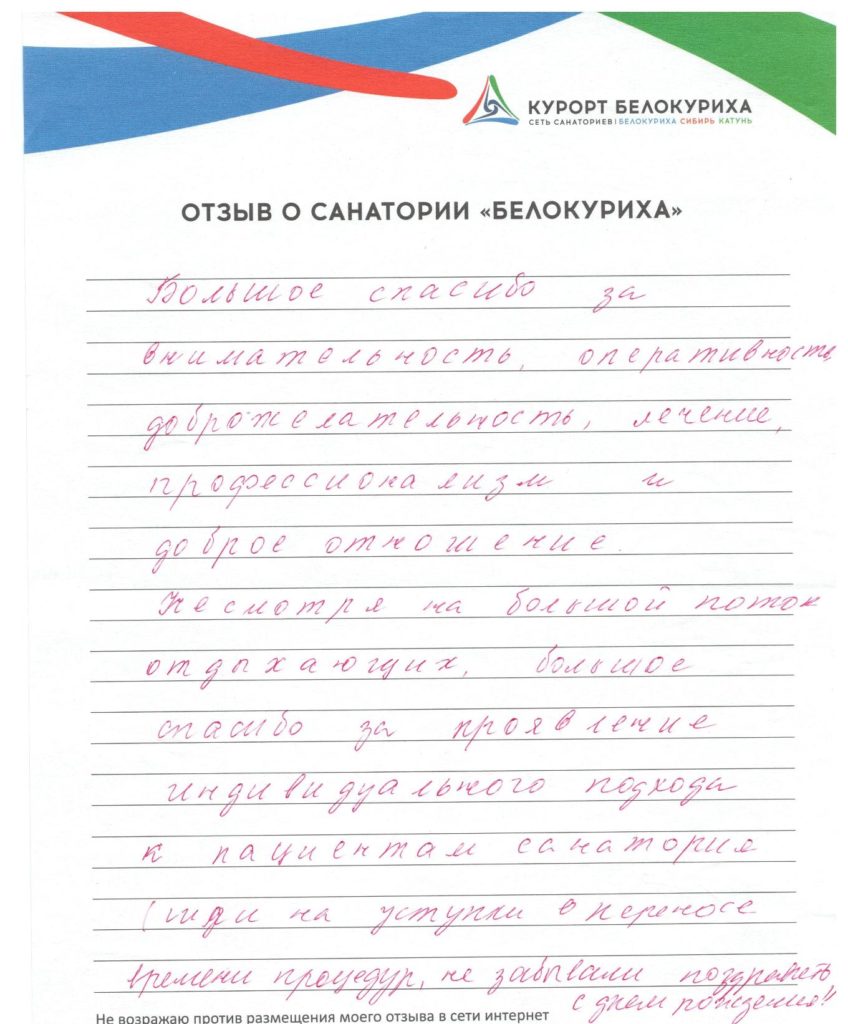 КУРОРТ БЕЛОКУРИХА
СЕТЬ САНАТОРИЕВ | БЕЛОКУРИХА СИБИРЬ КАТУНЬ
ОТЗЫВ О САНАТОРИИ «БЕЛОКУРИХА»
Большое спасибо за
внимательность, оперативность,
доброжелательность, лечение,
профессионализм и
доброе отношение.
Несмотря на большой поток
отдыхающих, большое
спасибо за проявление
индивидуального подхода
к пациентам санатория
(шли на уступки в переносе
времени процедур, не забывали поздравить
с днем рождения!!
Не возражаю против размещения моего отзыва в сети интернет